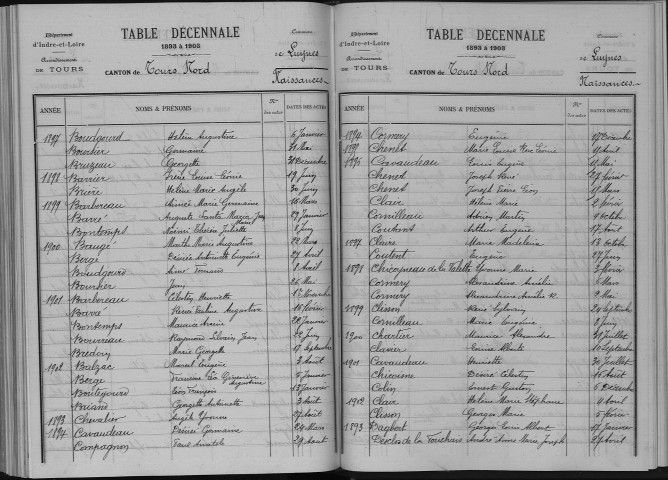 Département
d'Indre-et-Loire
Arrondissement
DE TOURS
TABLE DÉCENNALE
1893 à 1903
CANTON de Tours Nord
Commune
de Luynes
Naissances
ANNÉE NOMS & PRÉNOMS Nos DATES DES ACTES
1897 Boudgourd Hélène Augustine 6 Janvier
Bourlier Germaine 31 Mai
Bruzeau Georgette 31 Décembre
1898 Barrier Irène Louise Léonie 19 Juin
Brière Hélène Marie Angèle 30 Juin
1899 Barbereau Aimée Marie Germaine 16 Mars
Barré Auguste 29 Janvier
Bontemps Noémi Juliette 8 Juin
1900 Baugé Marthe Marie Augustine 22 Mars
Bergé Désirée Antoinette Eugénie 27 Avril
Boudgourd 8 Avril
Boursier 26 Mai
1901 Barbereau Célestin Henriette
Barré Augustine 16 Février
Bontemps Maurice 28 Janvier
Bourreau Raymond Jean 22 Juin
Bredon Marie Georgette 17 Septembre
1902 Balzac Marcel Eugène 3 Août
Berge Augustine 5 Janvier
Léon François 13 Janvier
Briand Georgette Antoinette 3 Août
1893 Chevalier Angèle Yvonne 27 Août
1894 Cavaudeau Désirée Germaine 29 Mars
Compagnon Paul 29 Août
Département
d'Indre-et-Loire
Arrondissement
DE TOURS
TABLE DÉCENNALE
1893 à 1903
CANTON de Tours Nord
Commune
de Luynes
Naissances
ANNÉE NOMS & PRÉNOMS Nos DATES DES ACTES
1894 Cormery Eugénie 17 Décembre
Chenet Marie Louise 9 Avril
1896 Cavaudeau Louis Eugène 9 Mai
Chenet Joseph René 27 Février
Chenet Joseph Léon 17 Mars
Claire Hélène Marie 2 Février
Cornilleau Adrien Martin 4 Octobre
Coutant Arthur Eugène 17 Août
1897 Claire Marie Madeleine 13 Octobre
Coutent Eugène 27 Juin
1898 Chicoyneau de la Valette Yvonne Marie 3 Février
Cormery Alexandrine Amélie Mars
Cormery Alexandrine Amélie 9 Mai
1899 Clisson René Sylvain 24 Septembre
Cornilleau Marie Eugénie 8 Juin
1900 Chartier Maurice Alexandre 31 Juillet
Clavier Louise Septembre
1901 Cavaudeau Henriette 30 Juillet
Désiré Célestin Août
Colin Ernest Gaston 6 Décembre
1902 Claire Hélène Marie Stéphane 4 Avril
Clisson Georges Marie 5 Février
1893 Dagbert Georges Louis Albert 17 Janvier
Déclos de la Fouchais André Anne Marie Joseph 27 Avril